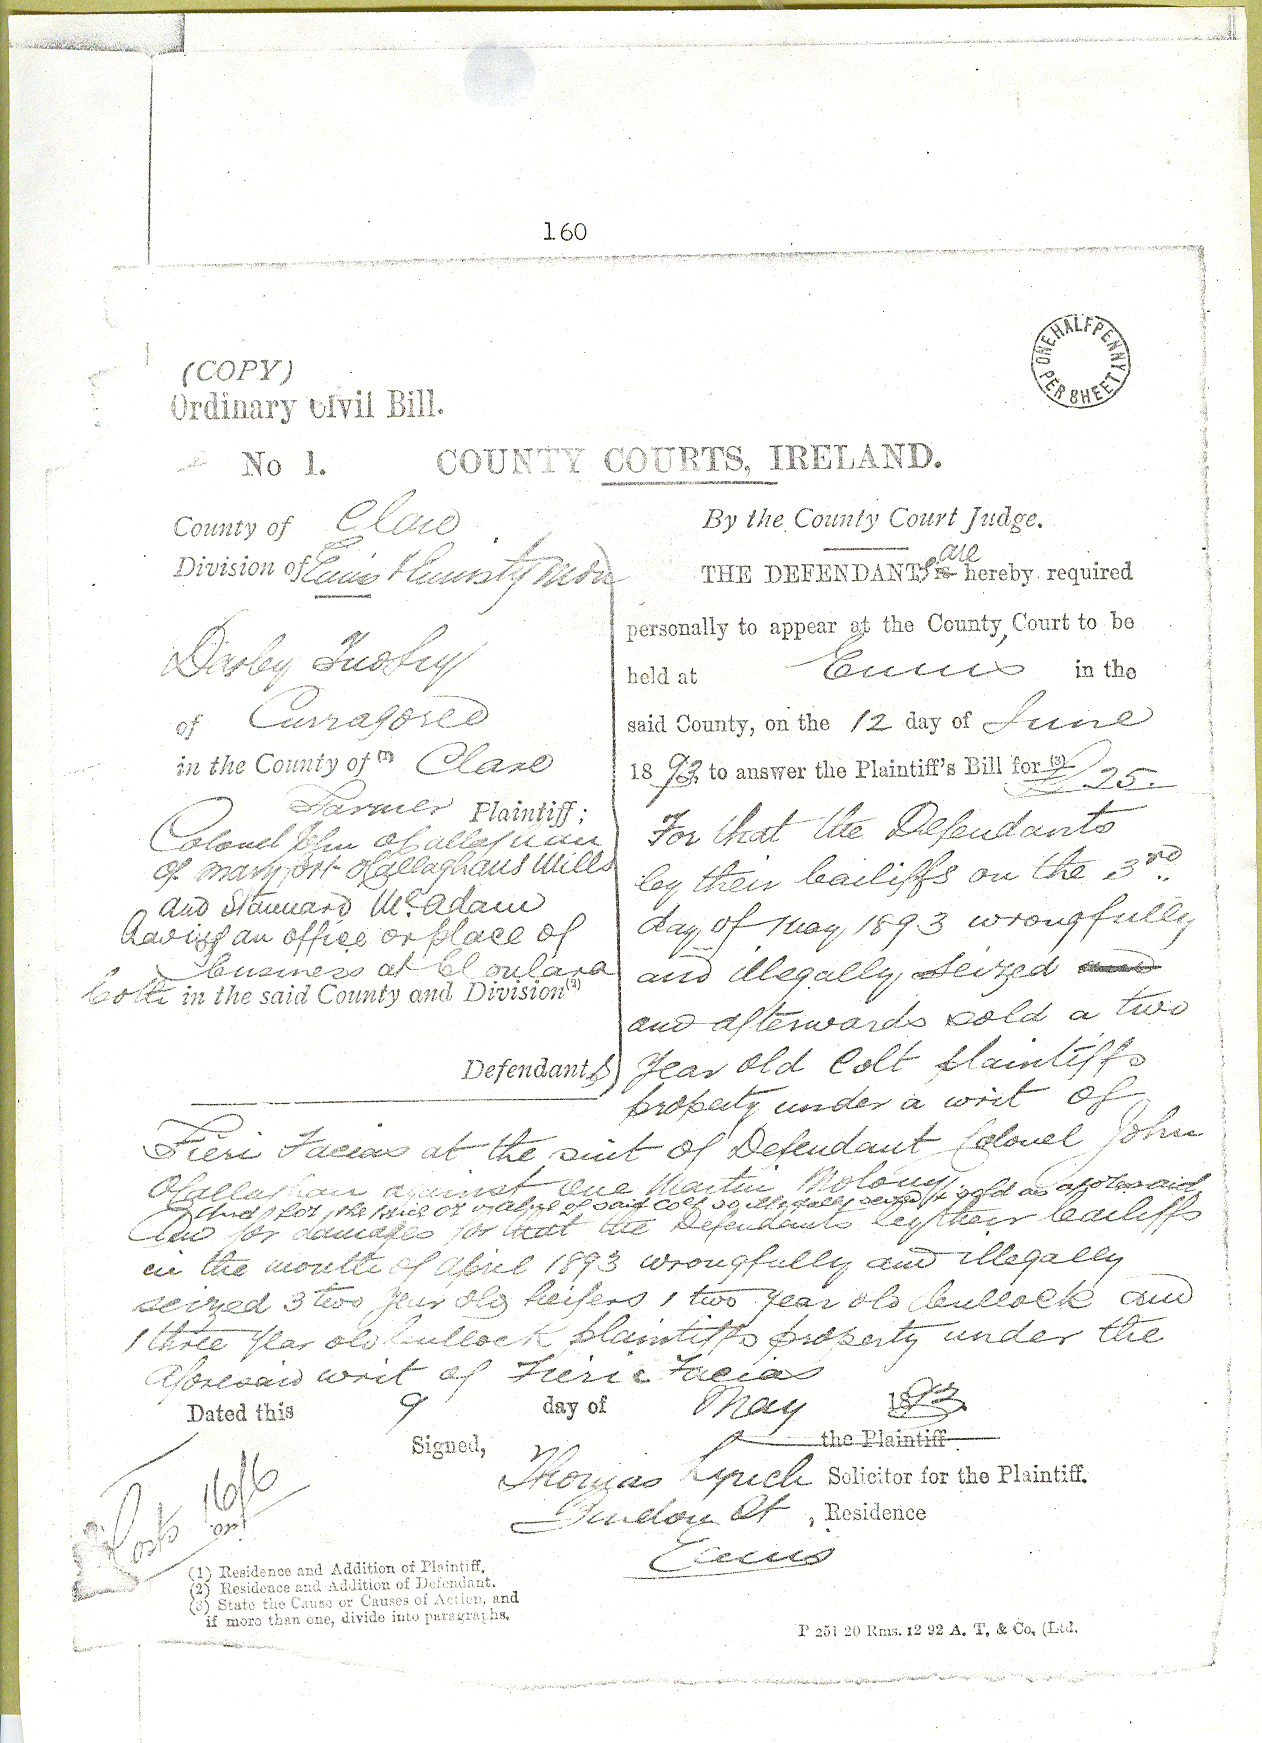 160
ONE HALFPENNY
PER SHEET
(COPY)
Ordinary Civil Bill.
No 1.
COUNTY COURTS, IRELAND.
County of Clare
Division of Ennis
Darby
of
in the County of (1) Clare
Farmer Plaintiff;
Colonel John O'Callaghan
of Maryfort O'Callaghans Mills
and Stannard McAdam
having an office or place of
business at Cloulara
both in the said County and Division (2)
Defendants
By the County Court Judge.
THE DEFENDANTS is are hereby required
personally to appear at the County Court to be
held at Ennis in the
said County, on the 12 day of June
1893. to answer the Plaintiff's Bill for (3) £25.
For that the Defendants
by their bailiffs on the 3rd
day of May 1893 wrongfully
and illegally seized
and afterwards sold a two
year old Colt plaintiffs
property under a writ of
Fieri Facias at the suit of Defendant Colonel John
O'Callaghan against one Martin Molony
And for the price or value of said colt so illegally seized & sold as aforesaid
And for damages for that the Defendants by their bailiffs
in the month of April 1893 wrongfully and illegally
seized 3 two year old heifers 1 two year old bullock and
1 three year old bullock plaintiffs property under the
aforesaid writ of Fieri Facias
Dated this 9 day of May 1893.
the Plaintiff.
Signed,
Thomas Lynch Solicitor for the Plaintiff.
Bindon St, Residence
Ennis
Costs 16/6
(1) Residence and Addition of Plaintiff.
(2) Residence and Addition of Defendant.
(3) State the Cause or Causes of Action, and
if more than one, divide into paragraphs.
P 251 20 Rms. 12 92 A. T. & Co. (Ltd.